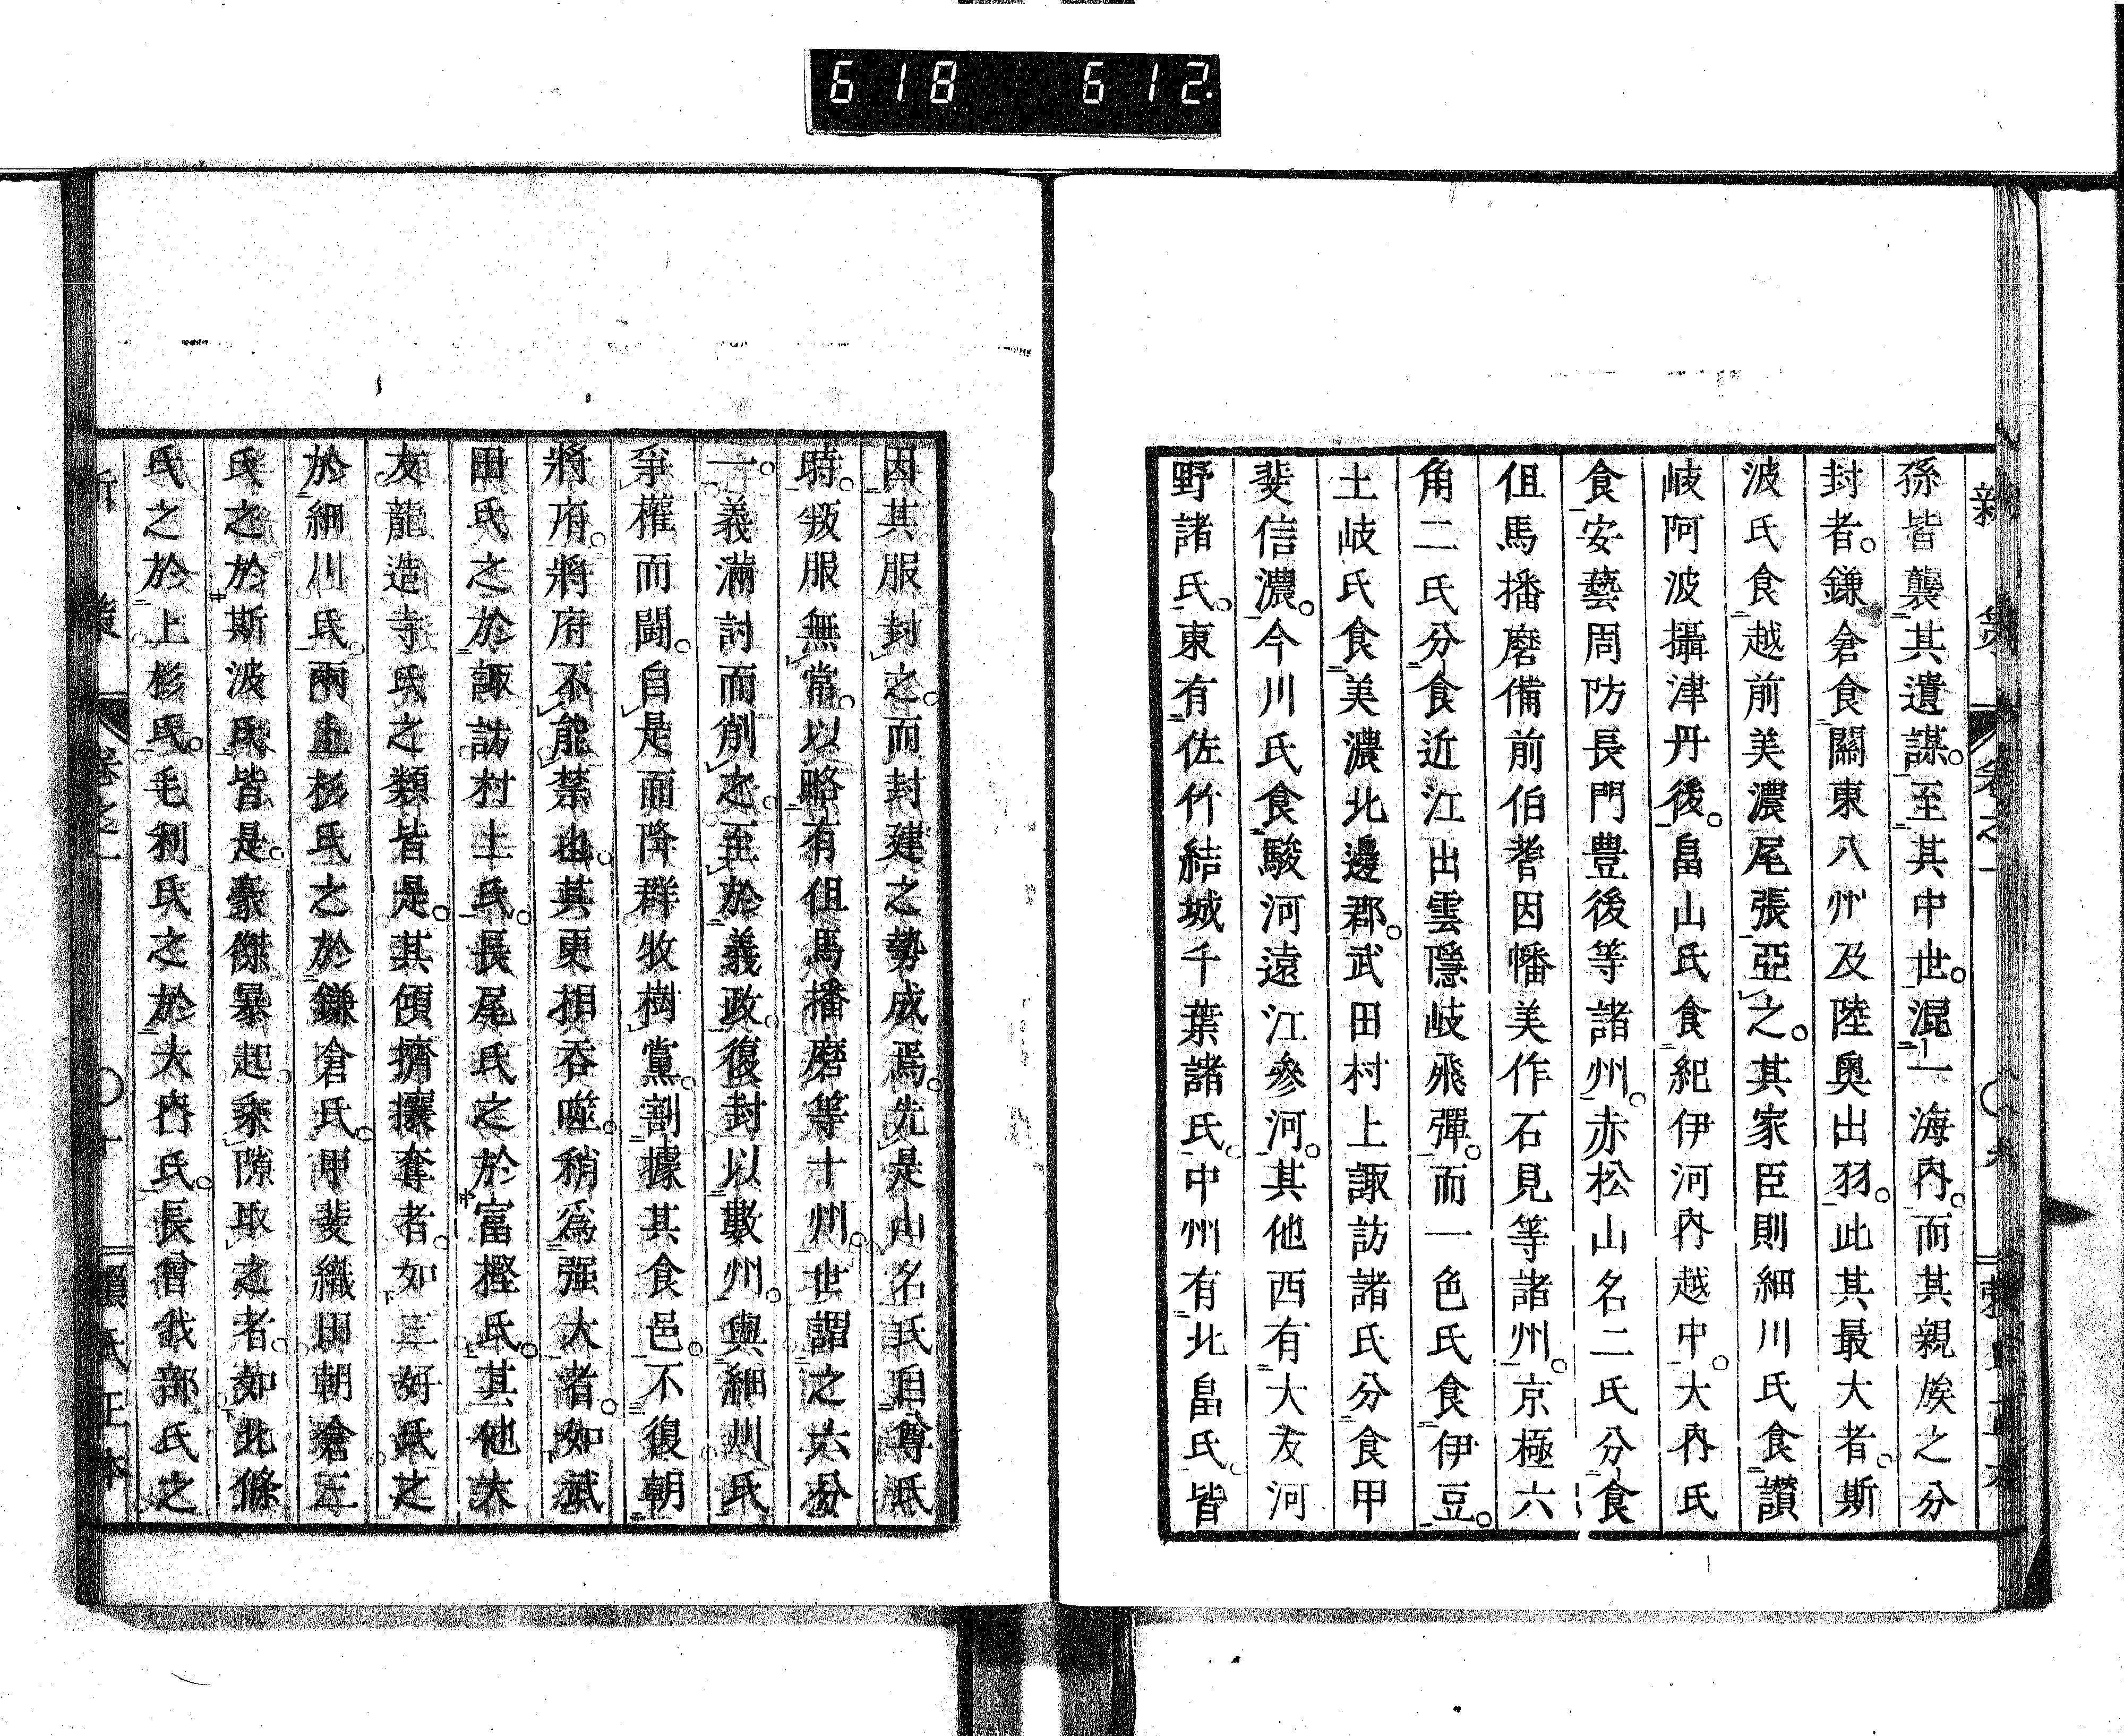 618 612
新策 卷之一
孫皆襲其遺謀。至其中世。混一海內。而其親族之分
封者。鎌倉食關東八州及陸奧出羽。此其最大者。斯
波氏食越前美濃尾張亞之。其家臣則細川氏食讚
岐阿波攝津丹後。畠山氏食紀伊河內越中。大內氏
食安藝周防長門豊後等諸州。赤松山名二氏分食
但馬播磨備前伯耆因幡美作石見等諸州。京極六
角二氏分食近江出雲隱岐飛彈。而一色氏食伊豆。
土岐氏食美濃北邊郡。武田村上諏訪諸氏分食甲
斐信濃。今川氏食駿河遠江參河。其他西有大友河
野諸氏。東有佐竹結城千葉諸氏。中州有北畠氏。皆
因其服封之。而封建之勢成焉。先是山名氏自尊氏
時。叛服無常。以略有但馬播磨等十州。世謂之六分
一。義滿討而削之。至於義政。復封以數州。與細川氏
爭權而鬪。自是而降群牧樹黨。割據其食邑。不復朝
將府。將府不能禁也。其更相吞噬。稍爲强大者。如武
田氏之於諏訪村上氏。長尾氏之於富樫氏。其他大
友龍造寺氏之類皆是。其傾擠攘奪者。如三好氏之
於細川氏。兩上杉氏之於鎌倉氏。甲斐織田朝倉三
氏之於斯波氏皆是。豪傑暴起。乘隙取之者。如北條
氏之於上杉氏。毛利氏之於大內氏。長曾我部氏之
卷之一
賴氏正本